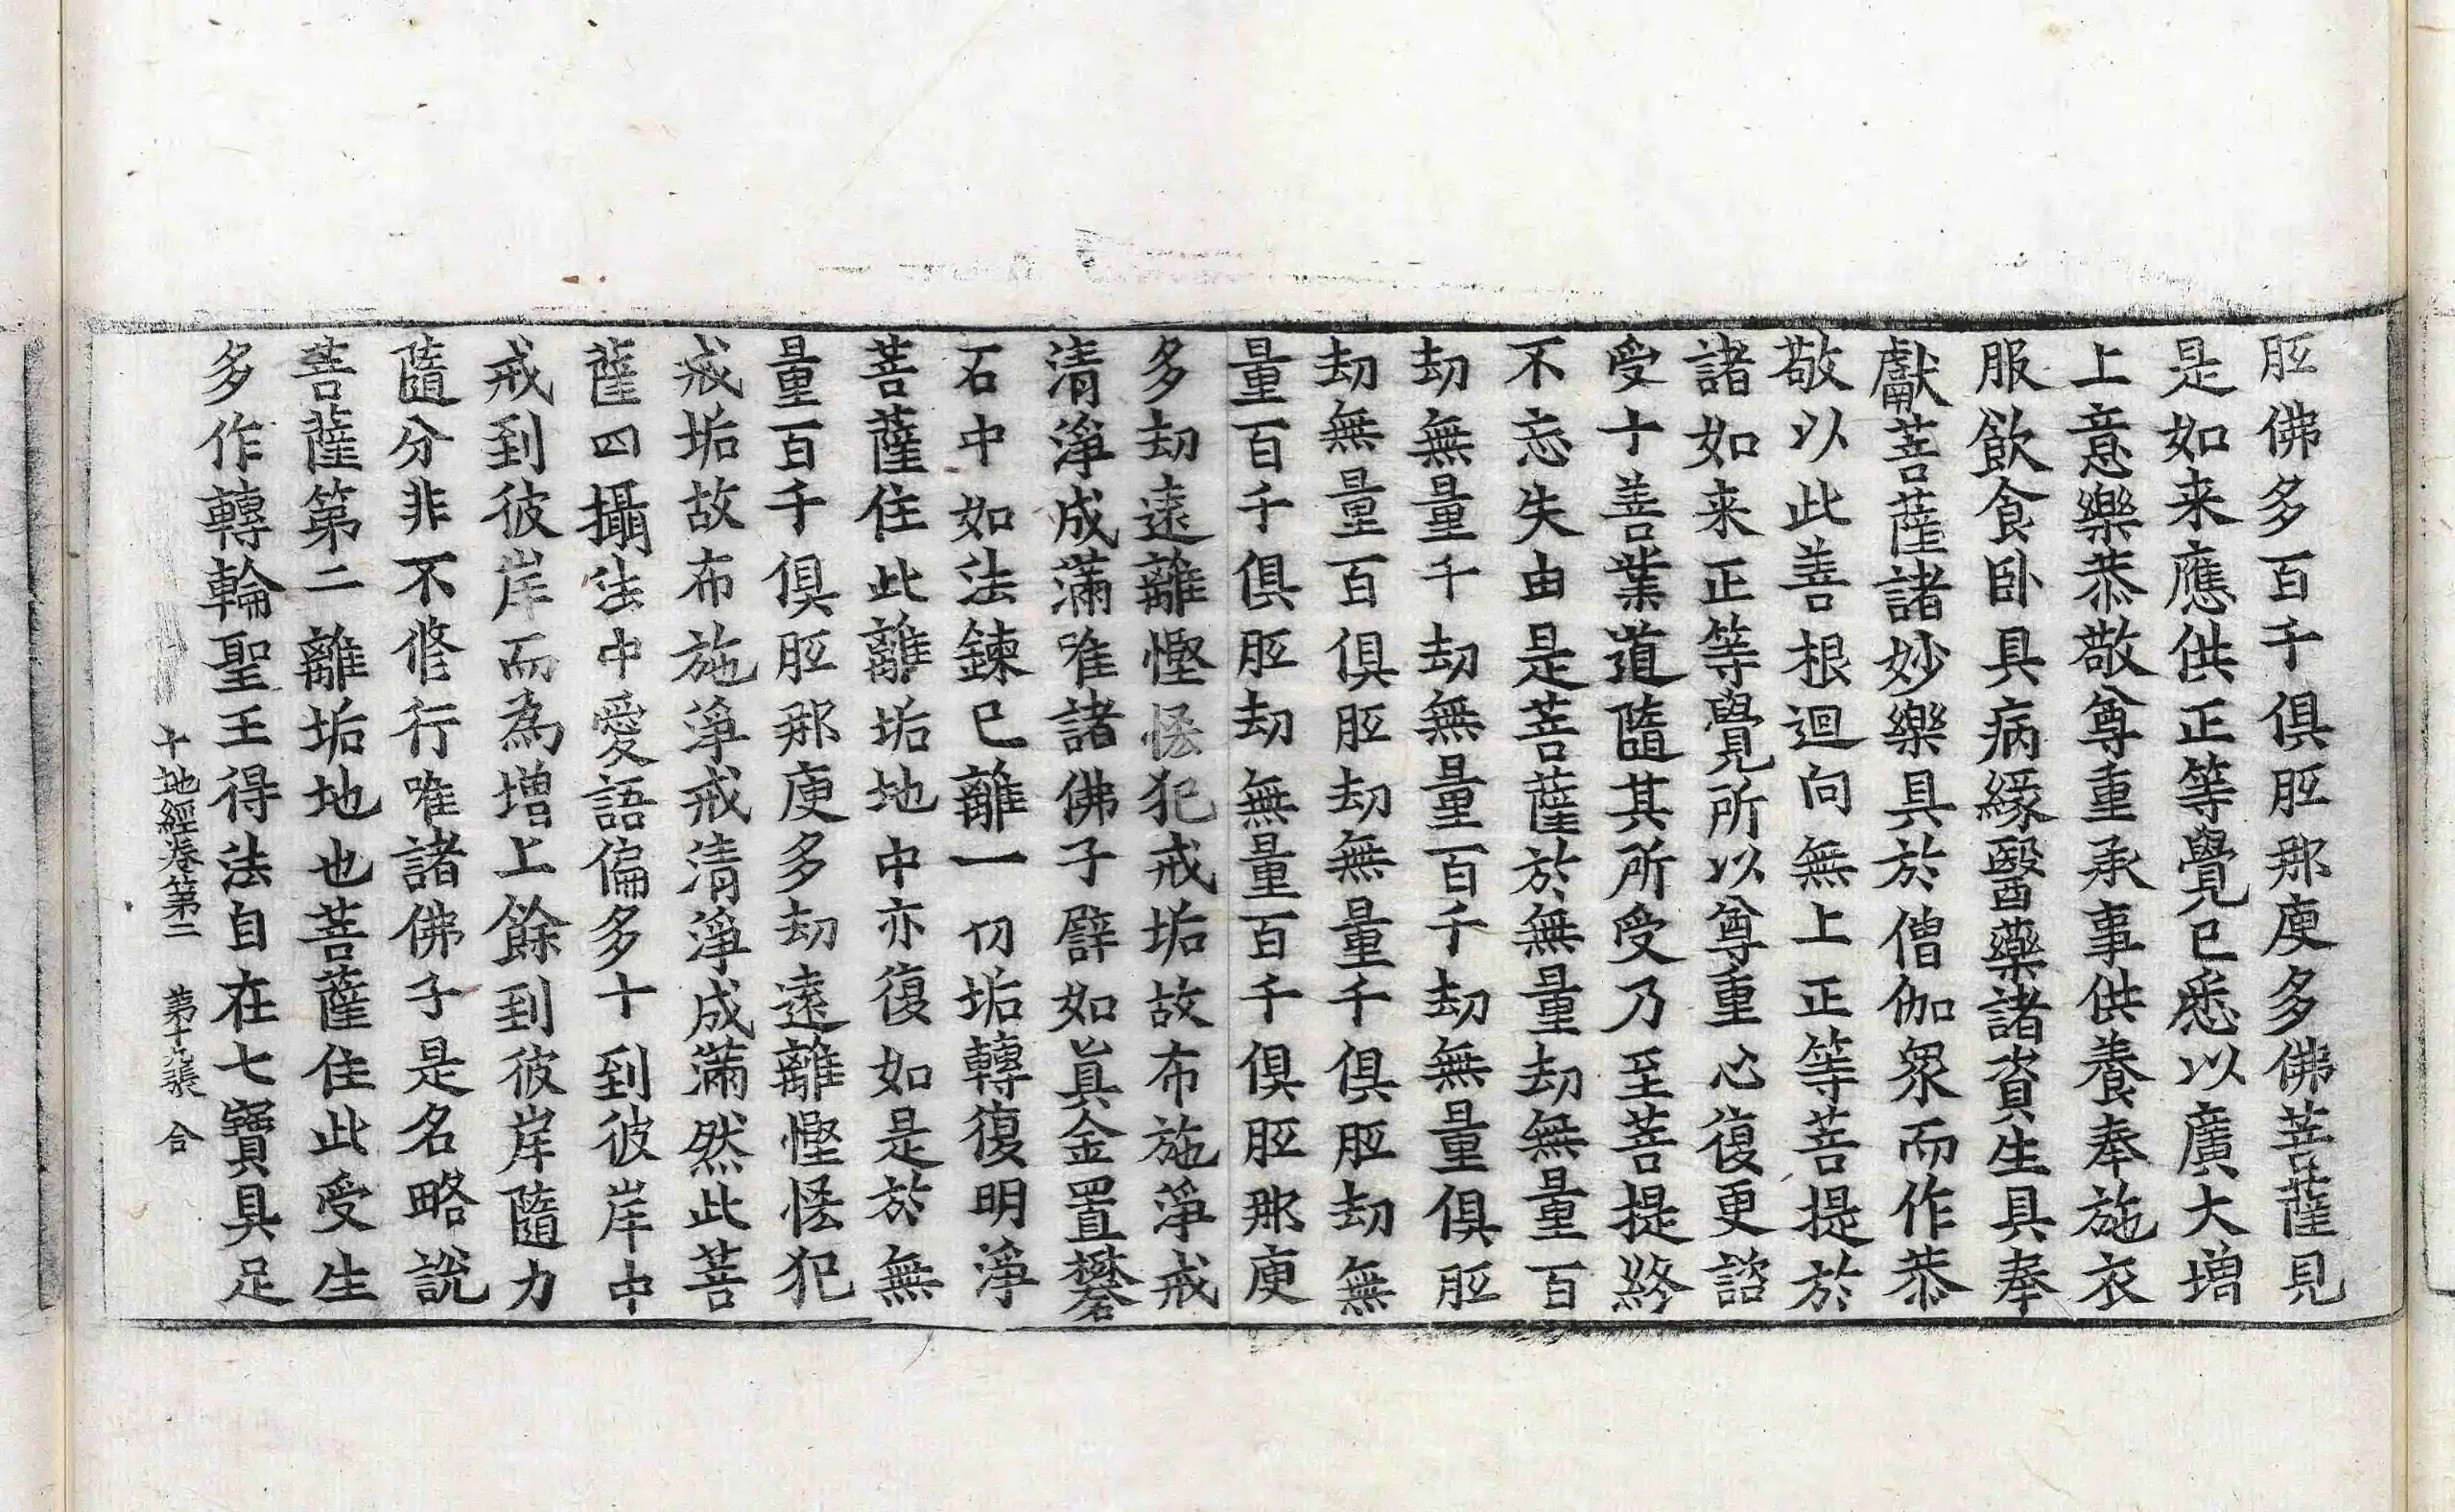 胝佛多百千俱胝那庾多佛菩薩見
是如来應供正等覺已悉以廣大增
上意樂恭敬尊重承事供養奉施衣
服飲食卧具病緣醫藥諸資生具奉
獻菩薩諸妙樂具於僧伽衆而作恭
敬以此善根迴向無上正等菩提於
諸如来正等覺所以尊重心復更諮
受十善業道隨其所受乃至菩提終
不忘失由是菩薩於無量劫無量百
劫無量千劫無量百千劫無量俱胝
劫無量百俱胝劫無量千俱胝劫無
量百千俱胝劫無量百千俱胝那庾
多劫遠離慳悋犯戒垢故布施淨戒
清淨成滿唯諸佛子譬如真金置礬
石中如法鍊已離一切垢轉復明淨
菩薩住此離垢地中亦復如是於無
量百千俱胝那庾多劫遠離慳悋犯
戒垢故布施淨戒清淨成滿然此菩
薩四攝法中愛語偏多十到彼岸中
戒到彼岸而為增上餘到彼岸隨力
隨分非不修行唯諸佛子是名略說
菩薩第二離垢地也菩薩住此受生
多作轉輪聖王得法自在七寶具足
十地經卷第二 第十九張 合